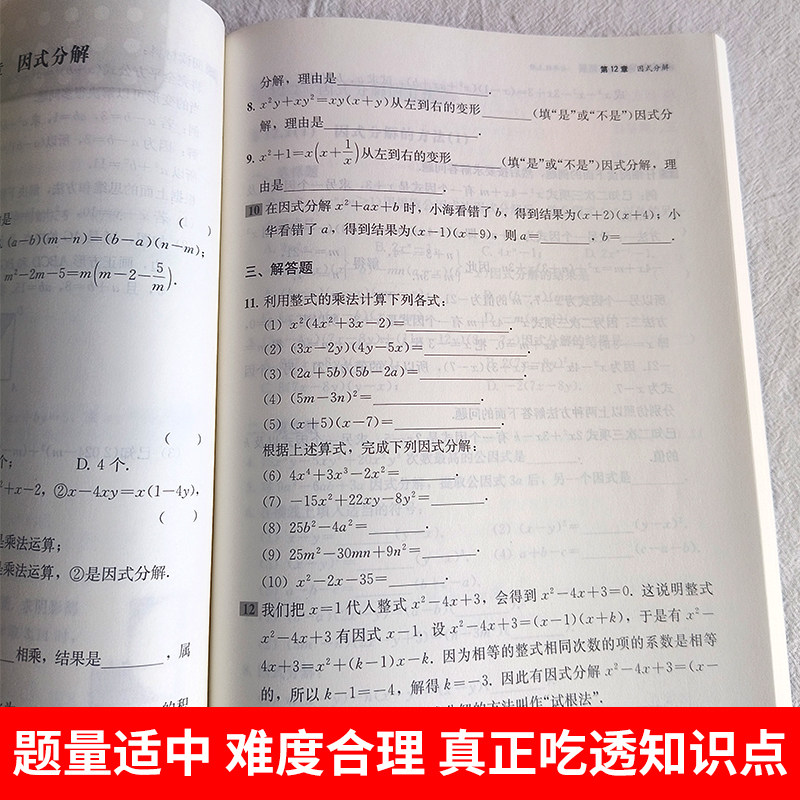 因式分解
是
(   )
(a-b)(m-n)=(b-a)(n-m);
m²-2m-5=m(m-2-5/m).
(   )
个;  D. 4 个.
²+x-2, ②x-4xy=x(1-4y),
(   )
是乘法运算;
是乘法运算, ②是因式分解.
相乘, 结果是________, 属
的积
第 12 章 因式分解
分解, 理由是________.
8. x²y+xy²=xy(x+y)从左到右的变形________(填“是”或“不是”)因式分
解, 理由是________.
9. x²+1=x(x+1/x)从左到右的变形________(填“是”或“不是”)因式分解, 理
由是________.
10 在因式分解 x²+ax+b 时, 小海看错了 b, 得到结果为(x+2)(x+4); 小
华看错了 a, 得到结果为(x-1)(x-9), 则 a=________, b=________.
三、解答题
11. 利用整式的乘法计算下列各式:
(1) x²(4x²+3x-2)=________.
(2) (3x-2y)(4y-5x)=________.
(3) (2a+5b)(5b-2a)=________.
(4) (5m-3n)²=________.
(5) (x+5)(x-7)=________.
根据上述算式, 完成下列因式分解:
(6) 4x⁴+3x³-2x²=________.
(7) -15x²+22xy-8y²=________.
(8) 25b²-4a²=________.
(9) 25m²-30mn+9n²=________.
(10) x²-2x-35=________.
12 我们把 x=1 代入整式 x²-4x+3, 会得到 x²-4x+3=0. 这说明整式
x²-4x+3 有因式 x-1. 设 x²-4x+3=(x-1)(x+k), 于是有 x²-
4x+3=x²+(k-1)x-k. 因为相等的整式相同次数的项的系数是相等
的, 所以 k-1=-4, 解得 k=-3. 因此有因式分解 x²-4x+3=(x-
解的方法叫作“试根法”.
题量适中 难度合理 真正吃透知识点